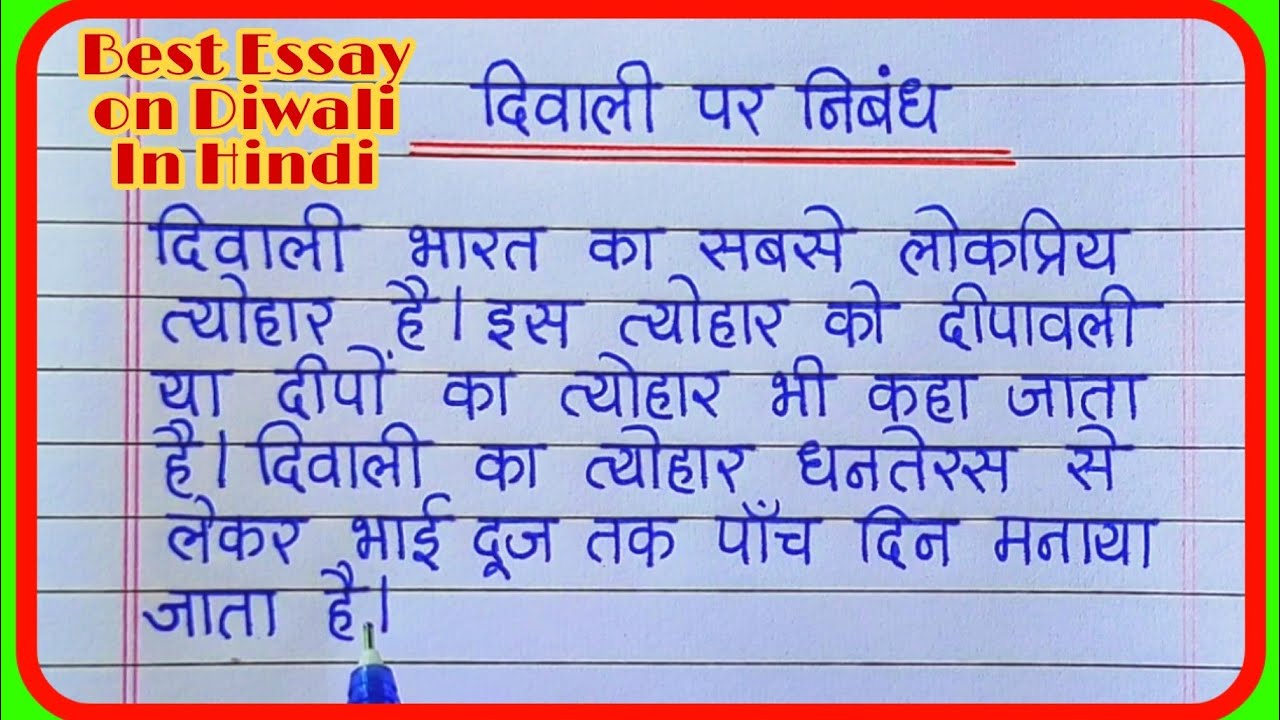 Best Essay
on Diwali
In Hindi
दिवाली पर निबंध
दिवाली भारत का सबसे लोकप्रिय
त्योहार है। इस त्योहार को दीपावली
या दीपों का त्योहार भी कहा जाता
है। दिवाली का त्योहार धनतेरस से
लेकर भाई दूज तक पाँच दिन मनाया
जाता है।